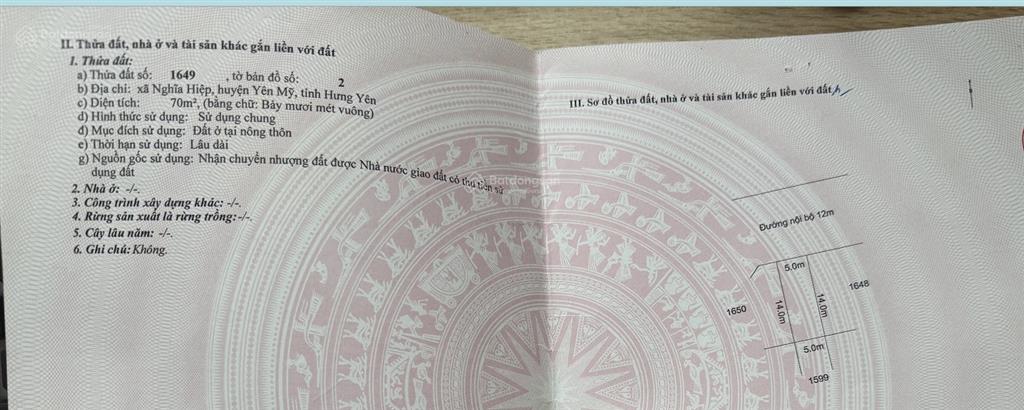 II. Thửa đất, nhà ở và tài sản khác gắn liền với đất
1. Thửa đất:
a) Thửa đất số: 1649 , tờ bản đồ số: 2
b) Địa chỉ: xã Nghĩa Hiệp, huyện Yên Mỹ, tỉnh Hưng Yên
c) Diện tích: 70m², (bằng chữ: Bảy mươi mét vuông)
d) Hình thức sử dụng: Sử dụng chung
đ) Mục đích sử dụng: Đất ở tại nông thôn
e) Thời hạn sử dụng: Lâu dài
g) Nguồn gốc sử dụng: Nhận chuyển nhượng đất được Nhà nước giao đất có thu tiền sử
dụng đất
2. Nhà ở: -/-.
3. Công trình xây dựng khác: -/-.
4. Rừng sản xuất là rừng trồng:-/-.
5. Cây lâu năm: -/-.
6. Ghi chú: Không.
Batdongsan
III. Sơ đồ thửa đất, nhà ở và tài sản khác gắn liền với đất
Đường nội bộ 12m
5.0m
1648
14.0m
14.0m
1650
5.0m
1599